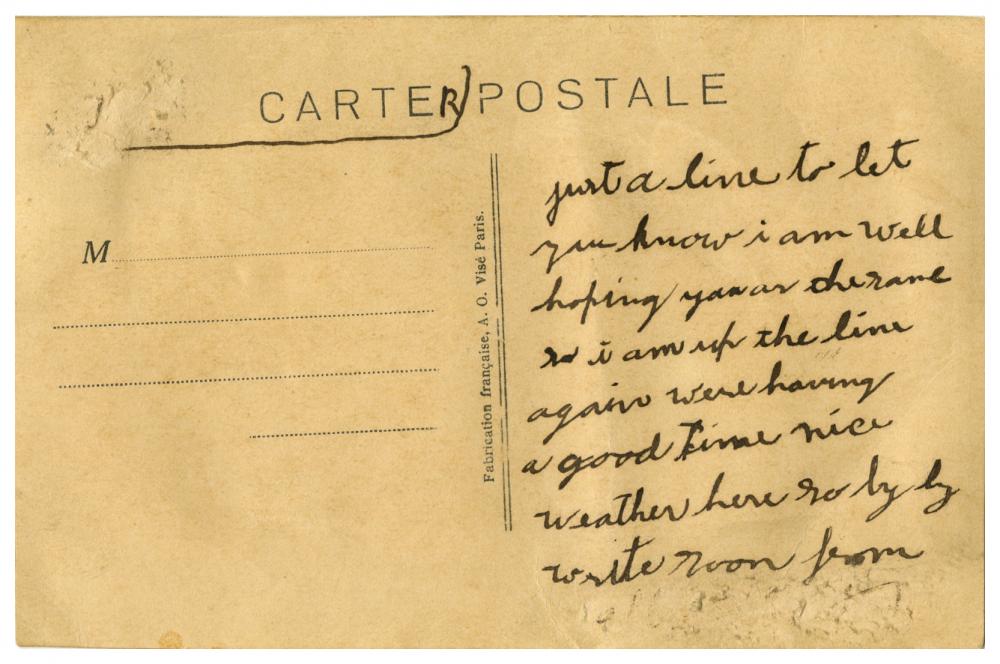 CARTE POSTALE
M
Fabrication française, A. O. Visé Paris.
just a line to let
you know i am well
hoping you ar the same
so i am up the line
again were having
a good time nice
weather here so by by
write soon from